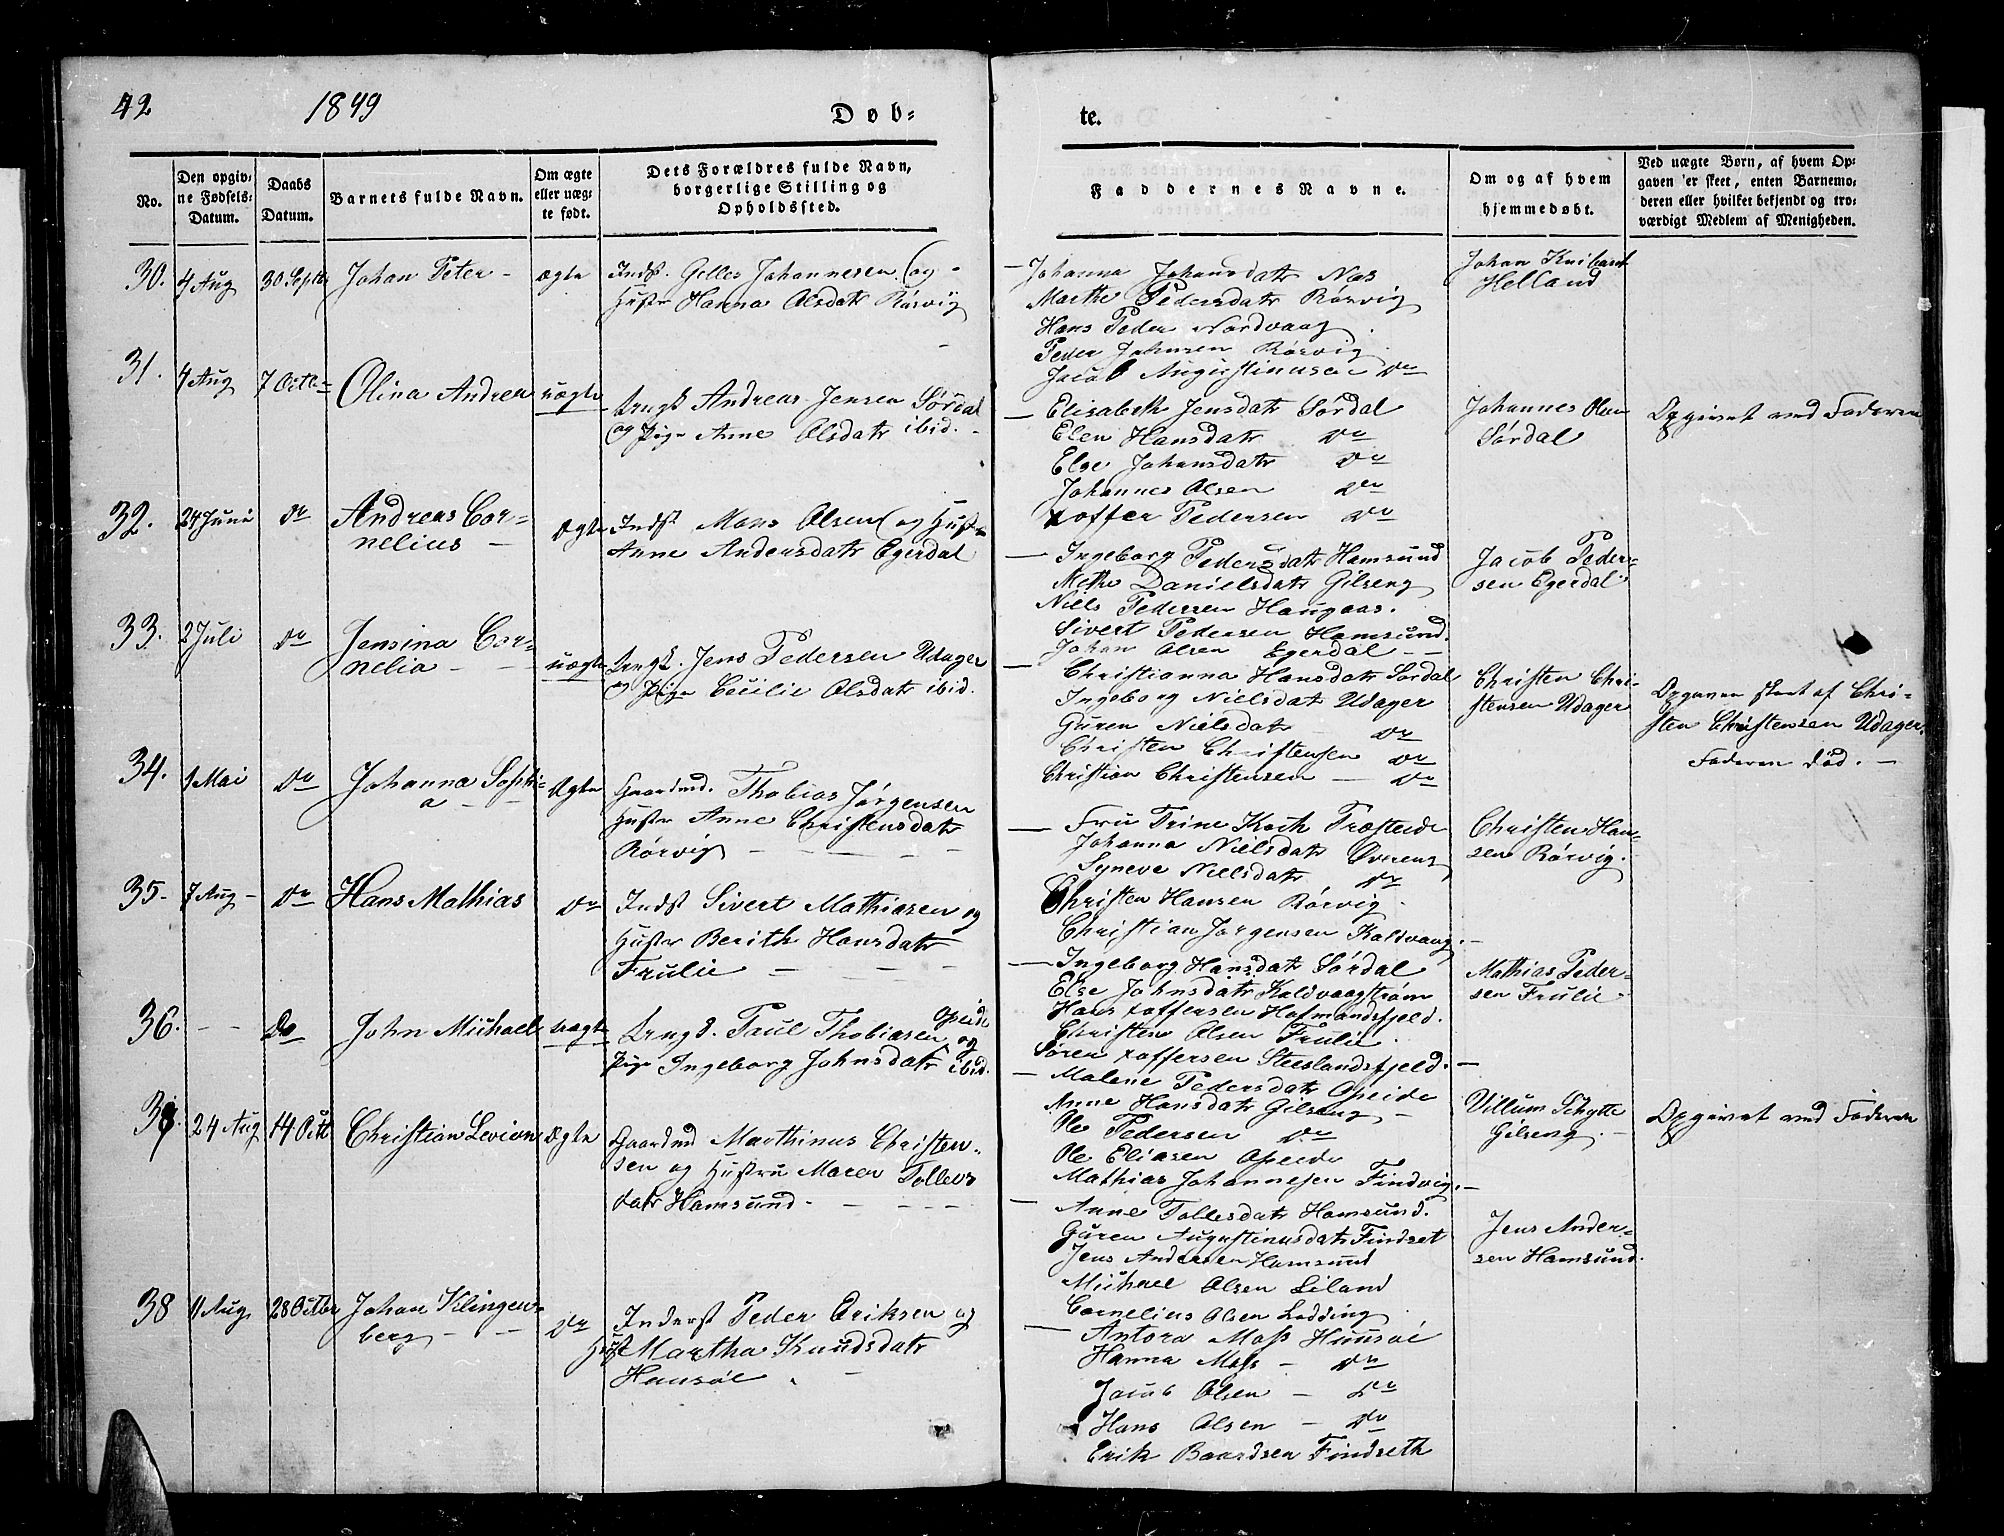 42 1849 Døb-
te.
No.
Den opgiv-
ne Fødsels-
Datum.
Daabs
Datum.
Barnets fulde Navn.
Om ægte
eller uæg-
te født.
Dets Forældres fulde Navn,
borgerlige Stilling og
Opholdssted.
Faddernes Navne.
Om og af hvem
hjemmedøbt.
Ved uægte Børn, af hvem Op-
gaven er skeet, enten Barnemo-
deren eller hvilket bekjendt og tro-
værdigt Medlem af Menigheden.
30. 4 Aug 30 Septbr Johan Peter - ægte
Indst. Geller Johannesen (og -
Hustr Hanna Olsdatr Rørvig
- Johanna Johansdatr Næs
Marthe Pedersdatr Rørvig
Hans Peder Nordvaag
Peder Johnsen Rørvig
Jacob Augustinusen do
Johan
Helland
31. 4 Aug 7 Octb- Olina Andrea uægte
Drngk Andreas Jensen Sørdal
og Pige Anne Olsdatr ibid. -
- Elisabeth Jensdatr Sørdal
Elen Hansdatr do
Else Johansdatr do
Johannes Olsen do
Xoffer Pedersen do
Johannes Olsen
Sørdal
Opgivet ved Faderen
32. 24 Juni do Andreas Cor-
nelius - ægte
Indst Mons Olsen (og Hust-
Anne Andersdatr Egerdal
- Ingeborg Pedersdatr Hamsund
Methe Danielsdatr Gilseng
Niels Pedersen Haugaas.
Sivert Pedersen Hamsund.
Johan Olsen Egerdal - -
Jacob Peder-
sen Egerdal.
33. 2 Juli do Jensina Cor-
nelia - - uægte
Drngk. Jens Pedersen Udager
og Pige Cecilie Olsdatr ibid.
- Christianna Hansdatr Sørdal
Ingeborg Nielsdat Udager
Guren Nielsdat - do
Christen Christensen do
Christian Christensen - do
Christen Chri-
stensen Udager
Opgaven skeet af Chri-
sten Christensen Udager.
Faderen død. -
34. 1 Mai do Johanna Sophi-
a - - Ægte
Gaardmd. Thobias Jørgensen
Hustr Anne Christensdatr
Rørvig - - - -
- Fru Trine Koch Træsteide
Johanna Nielsdatr Øvreng
Syneve Nielsdatr do
Christen Hansen Rørvig.
Christian Jørgensen Kaldvaag.-
Christen Han-
sen Rørvig.
35. 7 Aug - do Hans Mathias do
Indst Sivert Mathiasen og
Hustr Berith Hansdatr
Frulie - - -
- Ingeborg Hansdatr Sørdal
Else Johnsdatr Kaldvaagstrøm
Hans Xoffersen Hofmandsfjeld.
Christen Olsen Frulie.
Søren Xoffersen Steslandsfjeld. -
Mathias Peder-
sen Frulie -
36. - - Do John Michael uægte
Drngk. Paul Thobiasen Opeide
og
Pige Ingeborg Johnsdatr ibid.
- Malene Pedersdatr Opeide
Anne Hansdatr Gilseng -
Ole Pedersen do
Ole Eliasen Opeide
Mathias Johannesen Findvig. -
Villum Schytte
Gilseng. -
Opgivet ved Faderen
37. 24 Aug 14 Octb Christian Levion Ægte
Gaardmd Marthinus Christen-
sen og Hustru Maren Tollevs
datr Hamsund - - - -
- Anne Tollesdatr Hamsund.
Guren Augustinusdatr Findset
Jens Andersen Hamsund
Michael Olsen Liland
Cornelius Olsen Lødding
Jens Ander-
sen Hamsund.
38 11 Aug. 28 Octbr Johan Klingen-
berg - - do
Inderst Peder Eriksen og
Hust Martha Knudsdatr
Hunsøe -
- Antora Moss Hunsøe
Hanna Moss - do
Jacob Olsen - do
Hans Olsen - do
Erik Baardsen Findseth